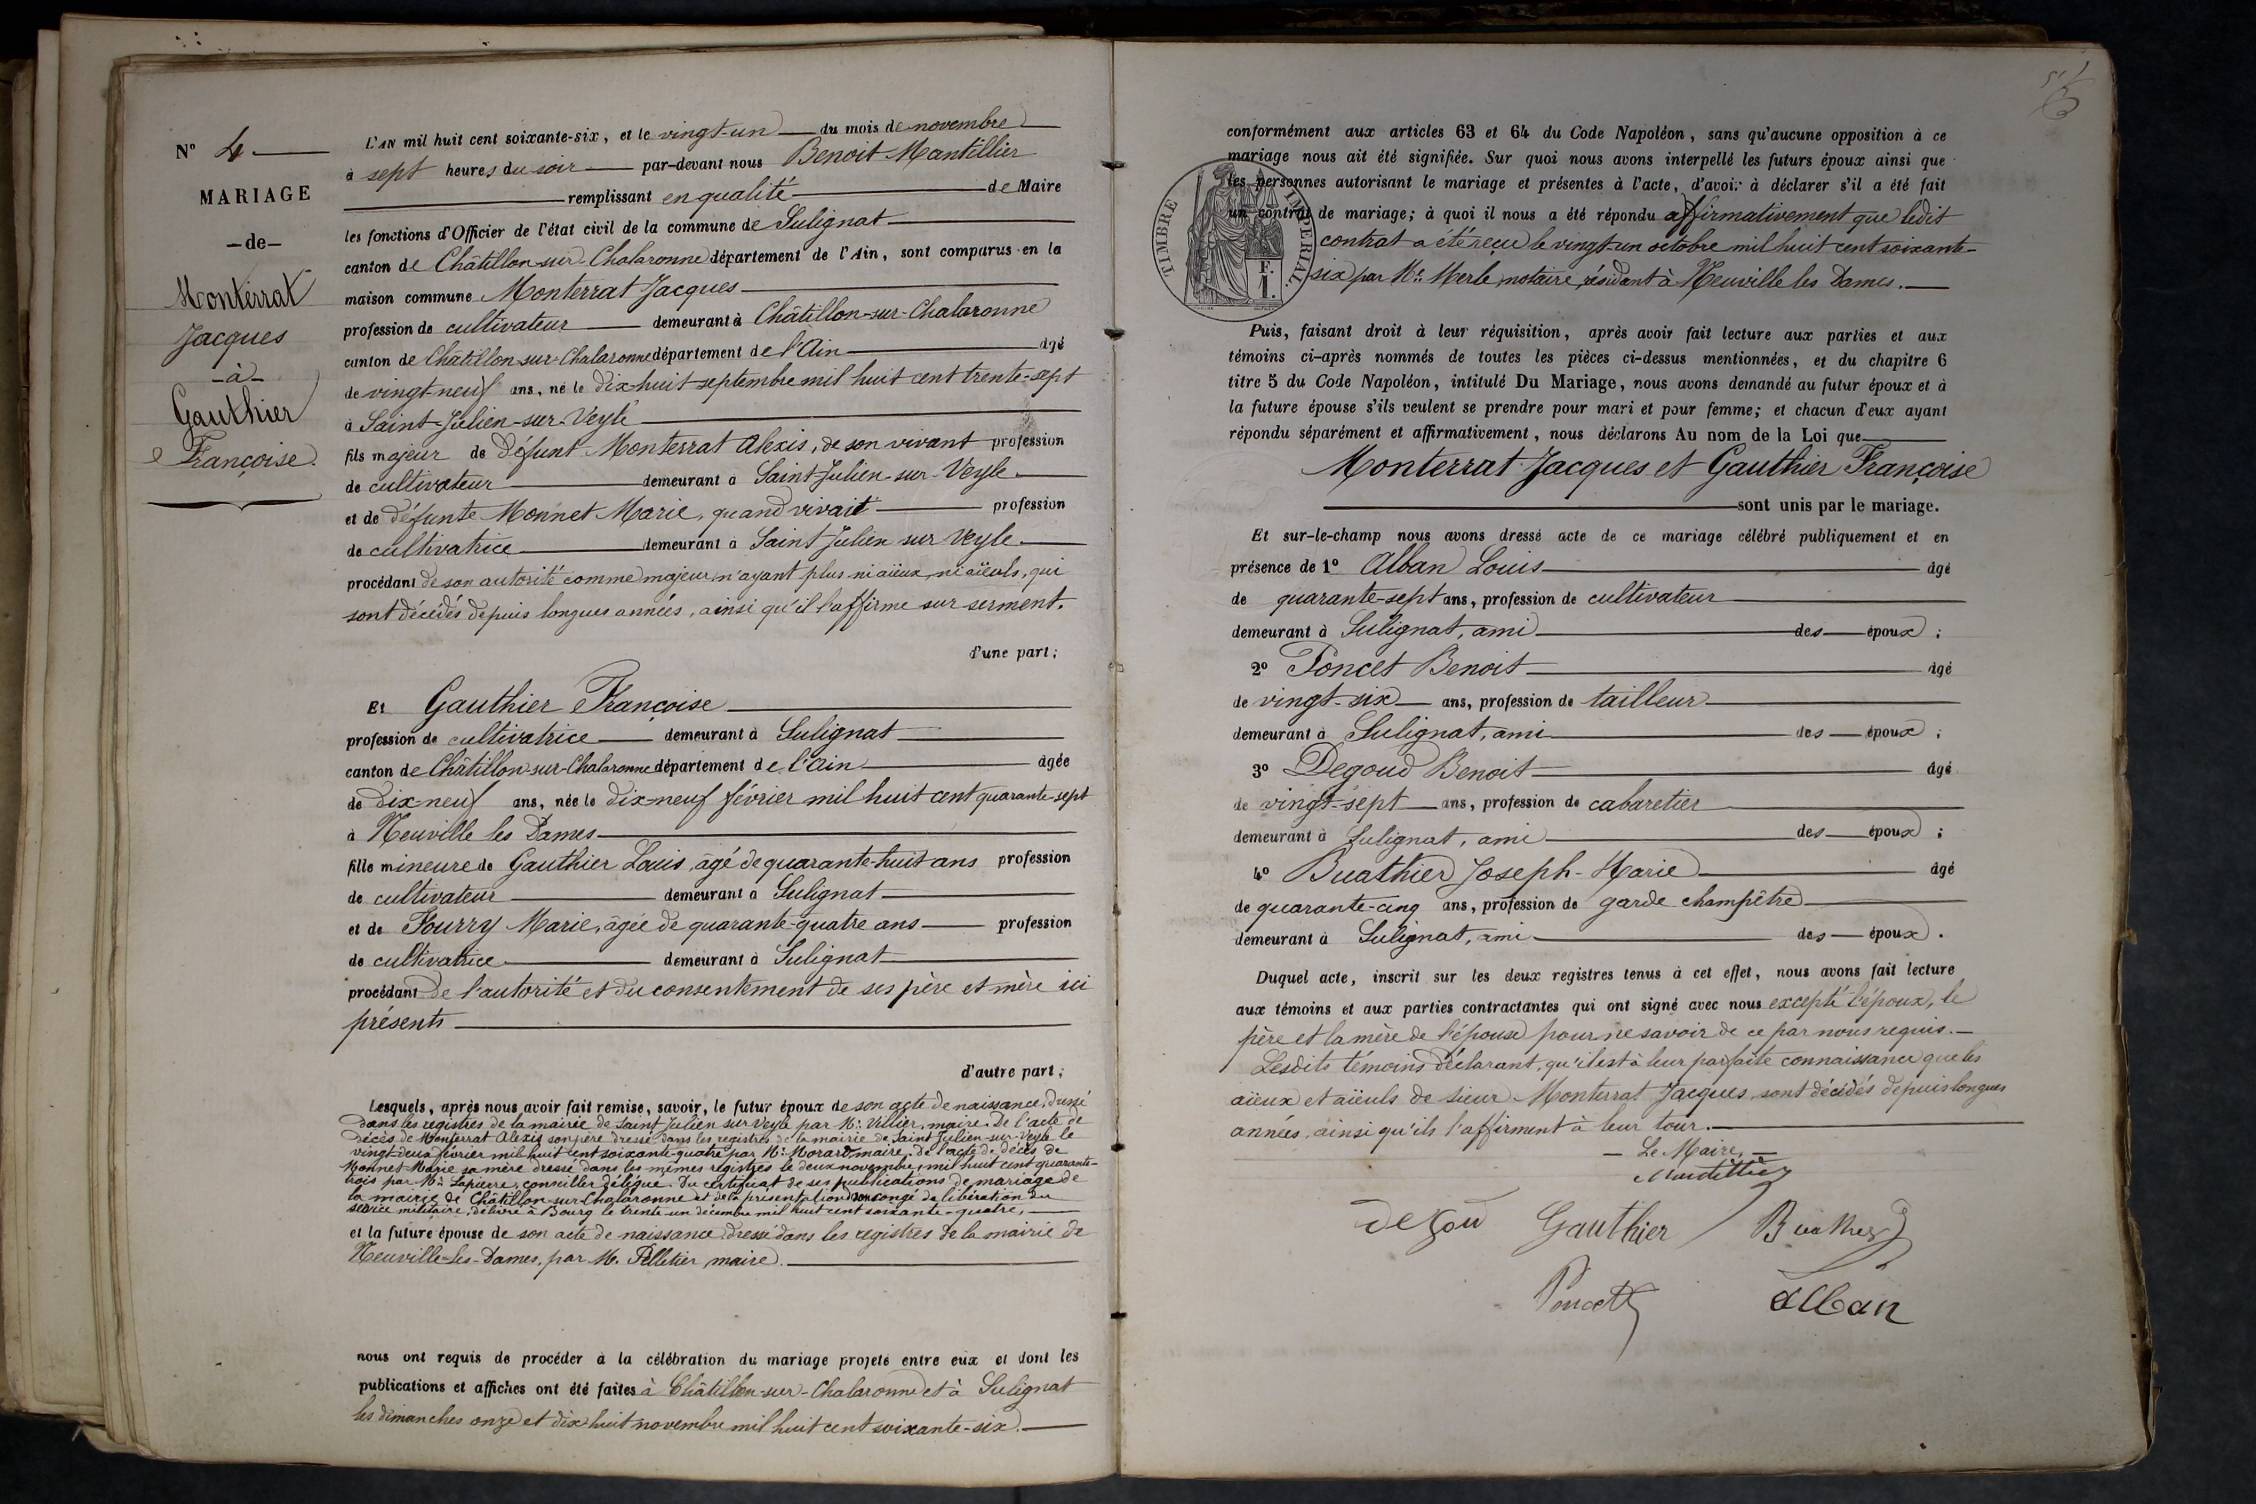 N° 4
MARIAGE
-de-
Monterrat
Jacques
-à-
Gauthier
Françoise.
L'AN mil huit cent soixante-six, et le vingt-un du mois de novembre
à sept heures du soir par-devant nous Benoit Mantillier
remplissant en qualité de Maire
les fonctions d'Officier de l'état civil de la commune de Sulignat
canton de Châtillon-sur-Chalaronne département de l'Ain, sont comparus en la
maison commune Monterrat Jacques
profession de cultivateur demeurant à Châtillon-sur-Chalaronne
canton de Châtillon-sur-Chalaronne département de l'Ain âgé
de vingt-neuf ans, né le dix-huit septembre mil huit cent trente-sept
à Saint-Julien-sur-Veyle
fils majeur de défunt Monterrat Alexis, de son vivant profession
de cultivateur demeurant à Saint-Julien-sur-Veyle
et de défunte Monnet Marie, quand vivait profession
de cultivatrice demeurant à Saint Julien sur Veyle
procédant de son autorité comme majeur, n'ayant plus ni aïeux, ni aïeuls, qui
sont décédés depuis longues années, ainsi qu'il l'affirme sur serment.
d'une part;
Et Gauthier Françoise
profession de cultivatrice demeurant à Sulignat
canton de Châtillon-sur-Chalaronne département de l'Ain âgée
de dix-neuf ans, née le dix-neuf février mil huit cent quarante-sept
à Neuville les Dames
fille mineure de Gauthier Louis, âgé de quarante-huit ans profession
de cultivateur demeurant à Sulignat
et de Fourry Marie, âgée de quarante-quatre ans profession
de cultivatrice demeurant à Sulignat
procédant de l'autorité et du consentement de ses père et mère ici
présents
d'autre part;
Lesquels, après nous avoir fait remise, savoir, le futur époux de son acte de naissance, dressé
dans les registres de la mairie de Saint Julien sur Veyle par Mr. Villier, maire. De l'acte de
décès de Monterrat Alexis son père dressé dans les registres de la mairie de Saint Julien-sur-Veyle le
vingt-deux février mil huit cent soixante-quatre par Mr. Morard, maire, de l'acte de décès de
Monnet Marie sa mère dressé dans les mêmes registres le deux novembre mil huit cent quarante-
trois par Mr. Lapierre, conseiller délégué. Du certificat de ses publications de mariage de
la mairie de Châtillon-sur-Chalaronne et de la présentation de son congé de libération du
service militaire, délivré à Bourg le trente-un décembre mil huit cent soixante-quatre,
et la future épouse de son acte de naissance dressé dans les registres de la mairie de
Neuville-les-Dames, par M. Pelletier maire.
nous ont requis de procéder à la célébration du mariage projeté entre eux et dont les
publications et affiches ont été faites à Châtillon-sur-Chalaronne et à Sulignat
les dimanches onze et dix huit novembre mil huit cent soixante-six.
TIMBRE IMPÉRIAL.
F.
I.
conformément aux articles 63 et 64 du Code Napoléon, sans qu'aucune opposition à ce
mariage nous ait été signifiée. Sur quoi nous avons interpellé les futurs époux ainsi que
les personnes autorisant le mariage et présentes à l'acte, d'avoir à déclarer s'il a été fait
un contrat de mariage; à quoi il nous a été répondu affirmativement que ledit
contrat a été reçu le vingt-un octobre mil huit cent soixante-
six par Mr. Merle, notaire, résidant à Neuville les Dames.
Puis, faisant droit à leur réquisition, après avoir fait lecture aux parties et aux
témoins ci-après nommés de toutes les pièces ci-dessus mentionnées, et du chapitre 6
titre 5 du Code Napoléon, intitulé Du Mariage, nous avons demandé au futur époux et à
la future épouse s'ils veulent se prendre pour mari et pour femme; et chacun d'eux ayant
répondu séparément et affirmativement, nous déclarons Au nom de la Loi que
Monterrat Jacques et Gauthier Françoise
sont unis par le mariage.
Et sur-le-champ nous avons dressé acte de ce mariage célébré publiquement et en
présence de 1° Alban Louis âgé
de quarante-sept ans, profession de cultivateur
demeurant à Sulignat, ami des époux;
2° Poncet Benoit âgé
de vingt-six ans, profession de tailleur
demeurant à Sulignat, ami des époux;
3° Degoud Benoit âgé
de vingt-sept ans, profession de cabaretier
demeurant à Sulignat, ami des époux;
4° Buathier Joseph-Marie âgé
de quarante-cinq ans, profession de garde champêtre
demeurant à Sulignat, ami des époux.
Duquel acte, inscrit sur les deux registres tenus à cet effet, nous avons fait lecture
aux témoins et aux parties contractantes qui ont signé avec nous excepté l'époux, le
père et la mère de l'épouse pour ne savoir de ce par nous requis.
Lesdits témoins déclarant, qu'il est à leur parfaite connaissance que les
aïeux et aïeuls de sieur Monterrat Jacques, sont décédés depuis longues
années, ainsi qu'ils l'affirment à leur tour.
Le Maire,
Mantillier
Degou Gauthier Buathier
Poncet Alban